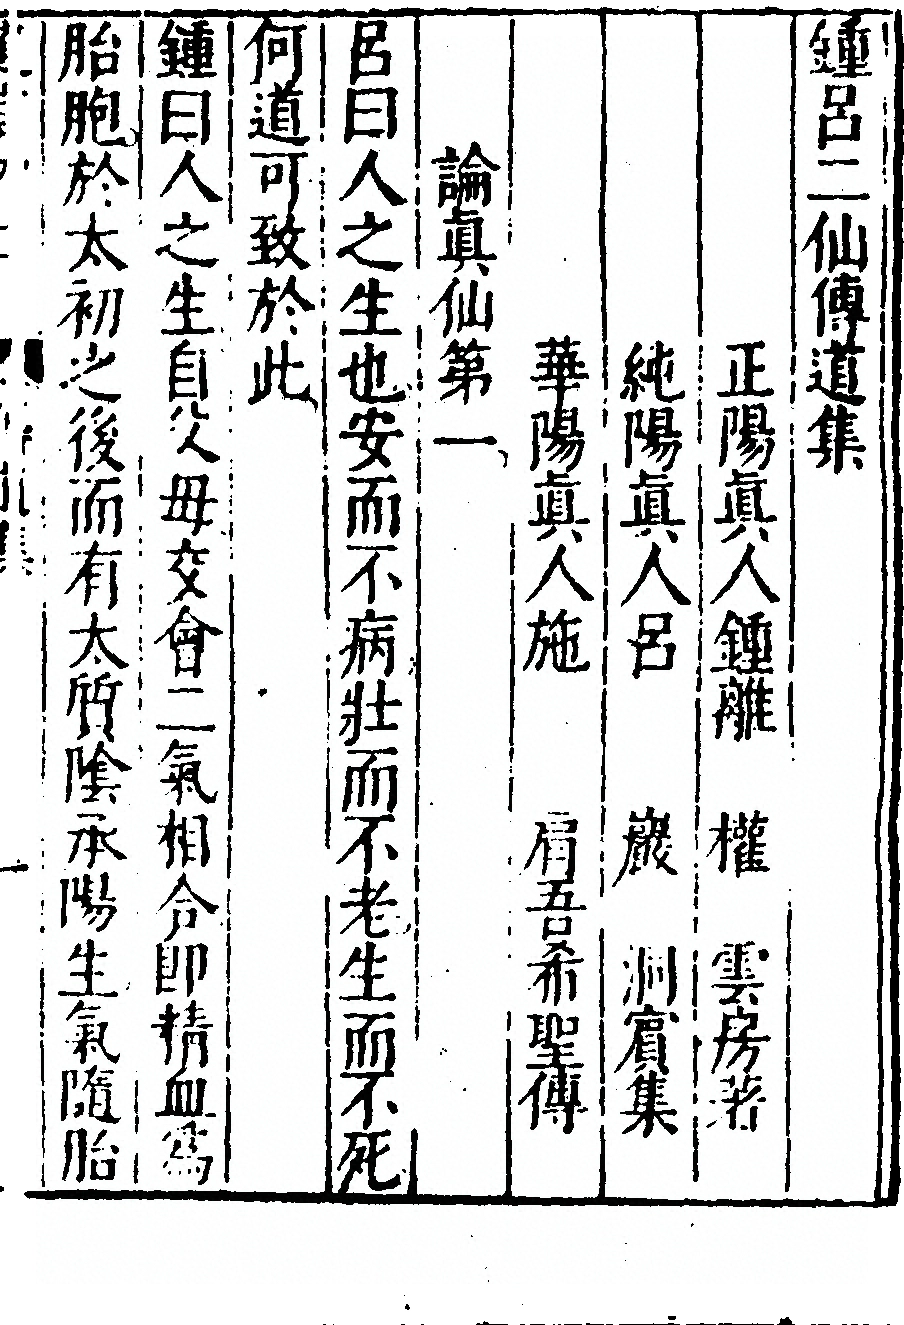 鍾呂二仙傳道集
正陽真人鍾離 權 雲房著
純陽眞人呂 巖 洞賓集
華陽眞人施 肩吾希聖傳
論眞仙第一
呂曰人之生也安而不病壯而不老生而不死
何道可致於此
鍾曰人之生自父母交會二氣相合即精血爲
胎胞於太初之後而有太質陰承陽生氣隨胎